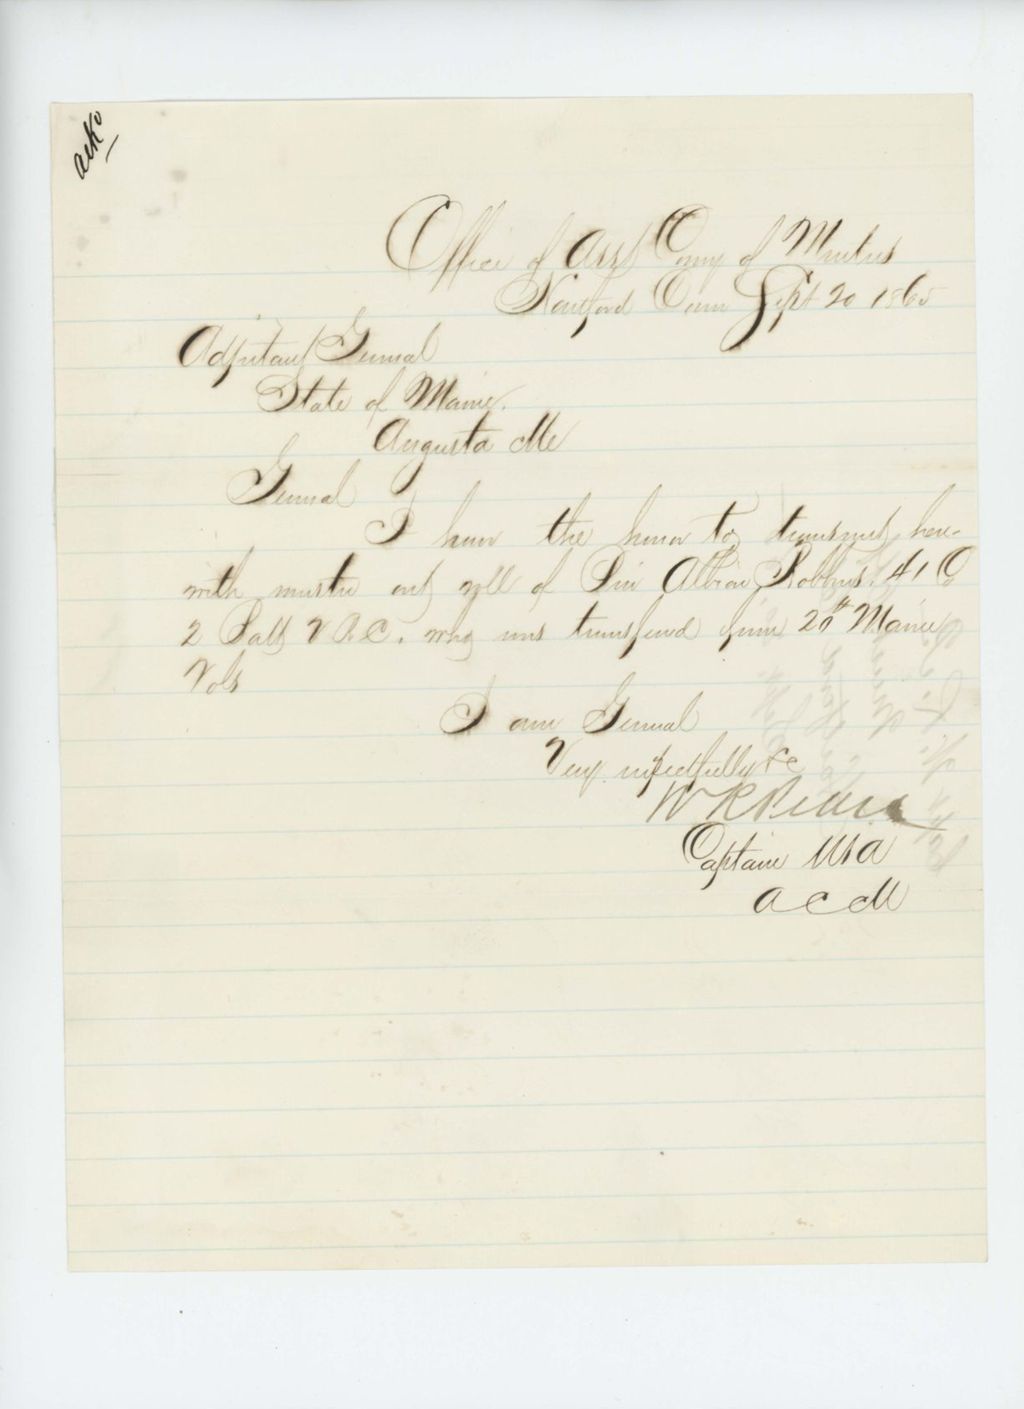 ack'd
Office of Asst Comy of Musters
Hartford Conn Sept 20 1865
Adjutant General
State of Maine.
Augusta Me
General
I have the honor to transmit here-
with muster out roll of Priv Albion Robbins. 41 Co
2 Batt V.R.C. who was transferred from 20th Maine
Vols
I am General
Very respectfully &c
W R Pease
Captain USA
A C M